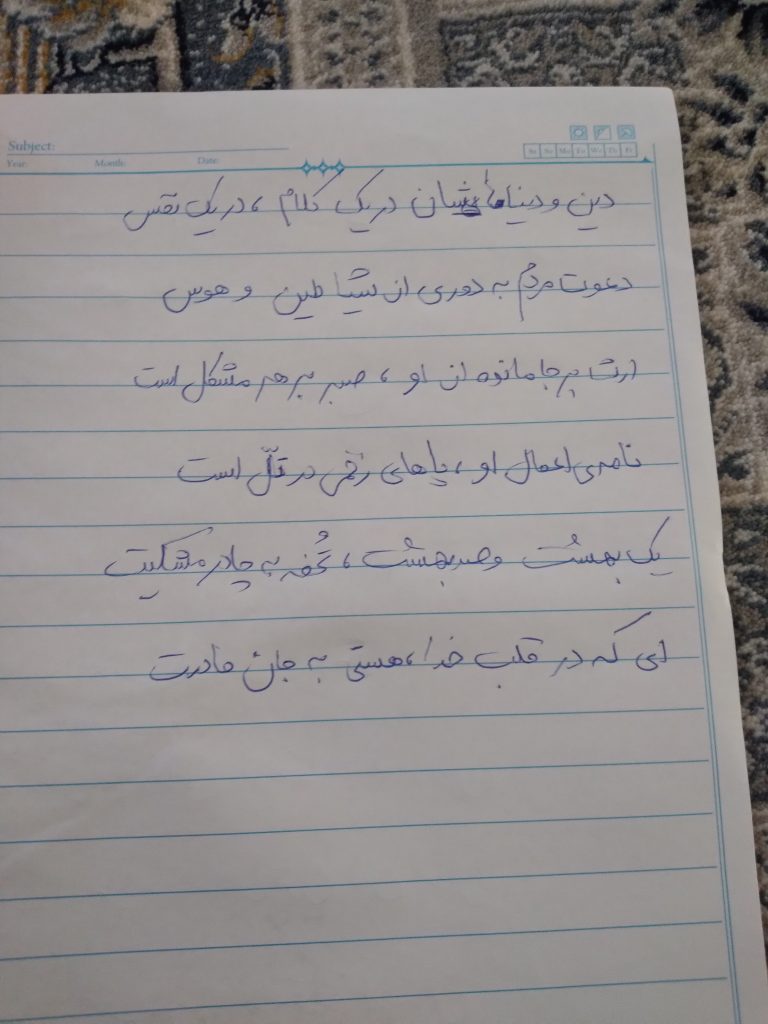 Subject:
Year: Month: Date:
Sa Su Mo Tu We Th Fr
دین و دنیاهاشان در یک کلام ، در یک نفس
دعوت مردم به دوری از شیاطین و هوس
ارث بر جا مانده از او ، صبر بر هر مشکل است
نامه‌ی اعمال او ، پاهای زخمی در تَلّ است
یک بهشت و صد بهشت ، تُحفه به چادر مشکیت
ای که در قلب خدا ، هستی به جان مادرت